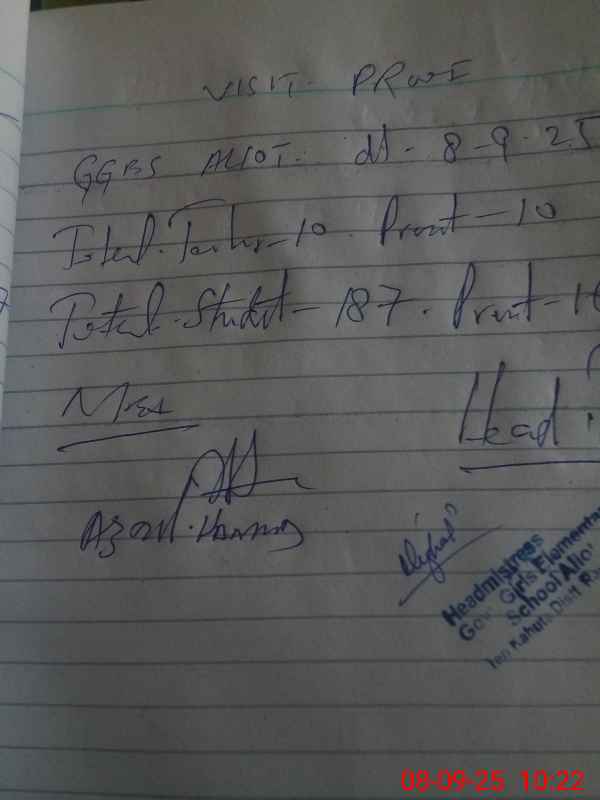 VISIT. PROof
GGES ALIOT. dt. 8-9-25
Total. Teacher-10. Present-10
Total. Student-187. Present-1
Mea
Head
Headmistress
Gov. Girls Elementar
School Allio
Teh Kahuta Distt R
08-09-25 10:22